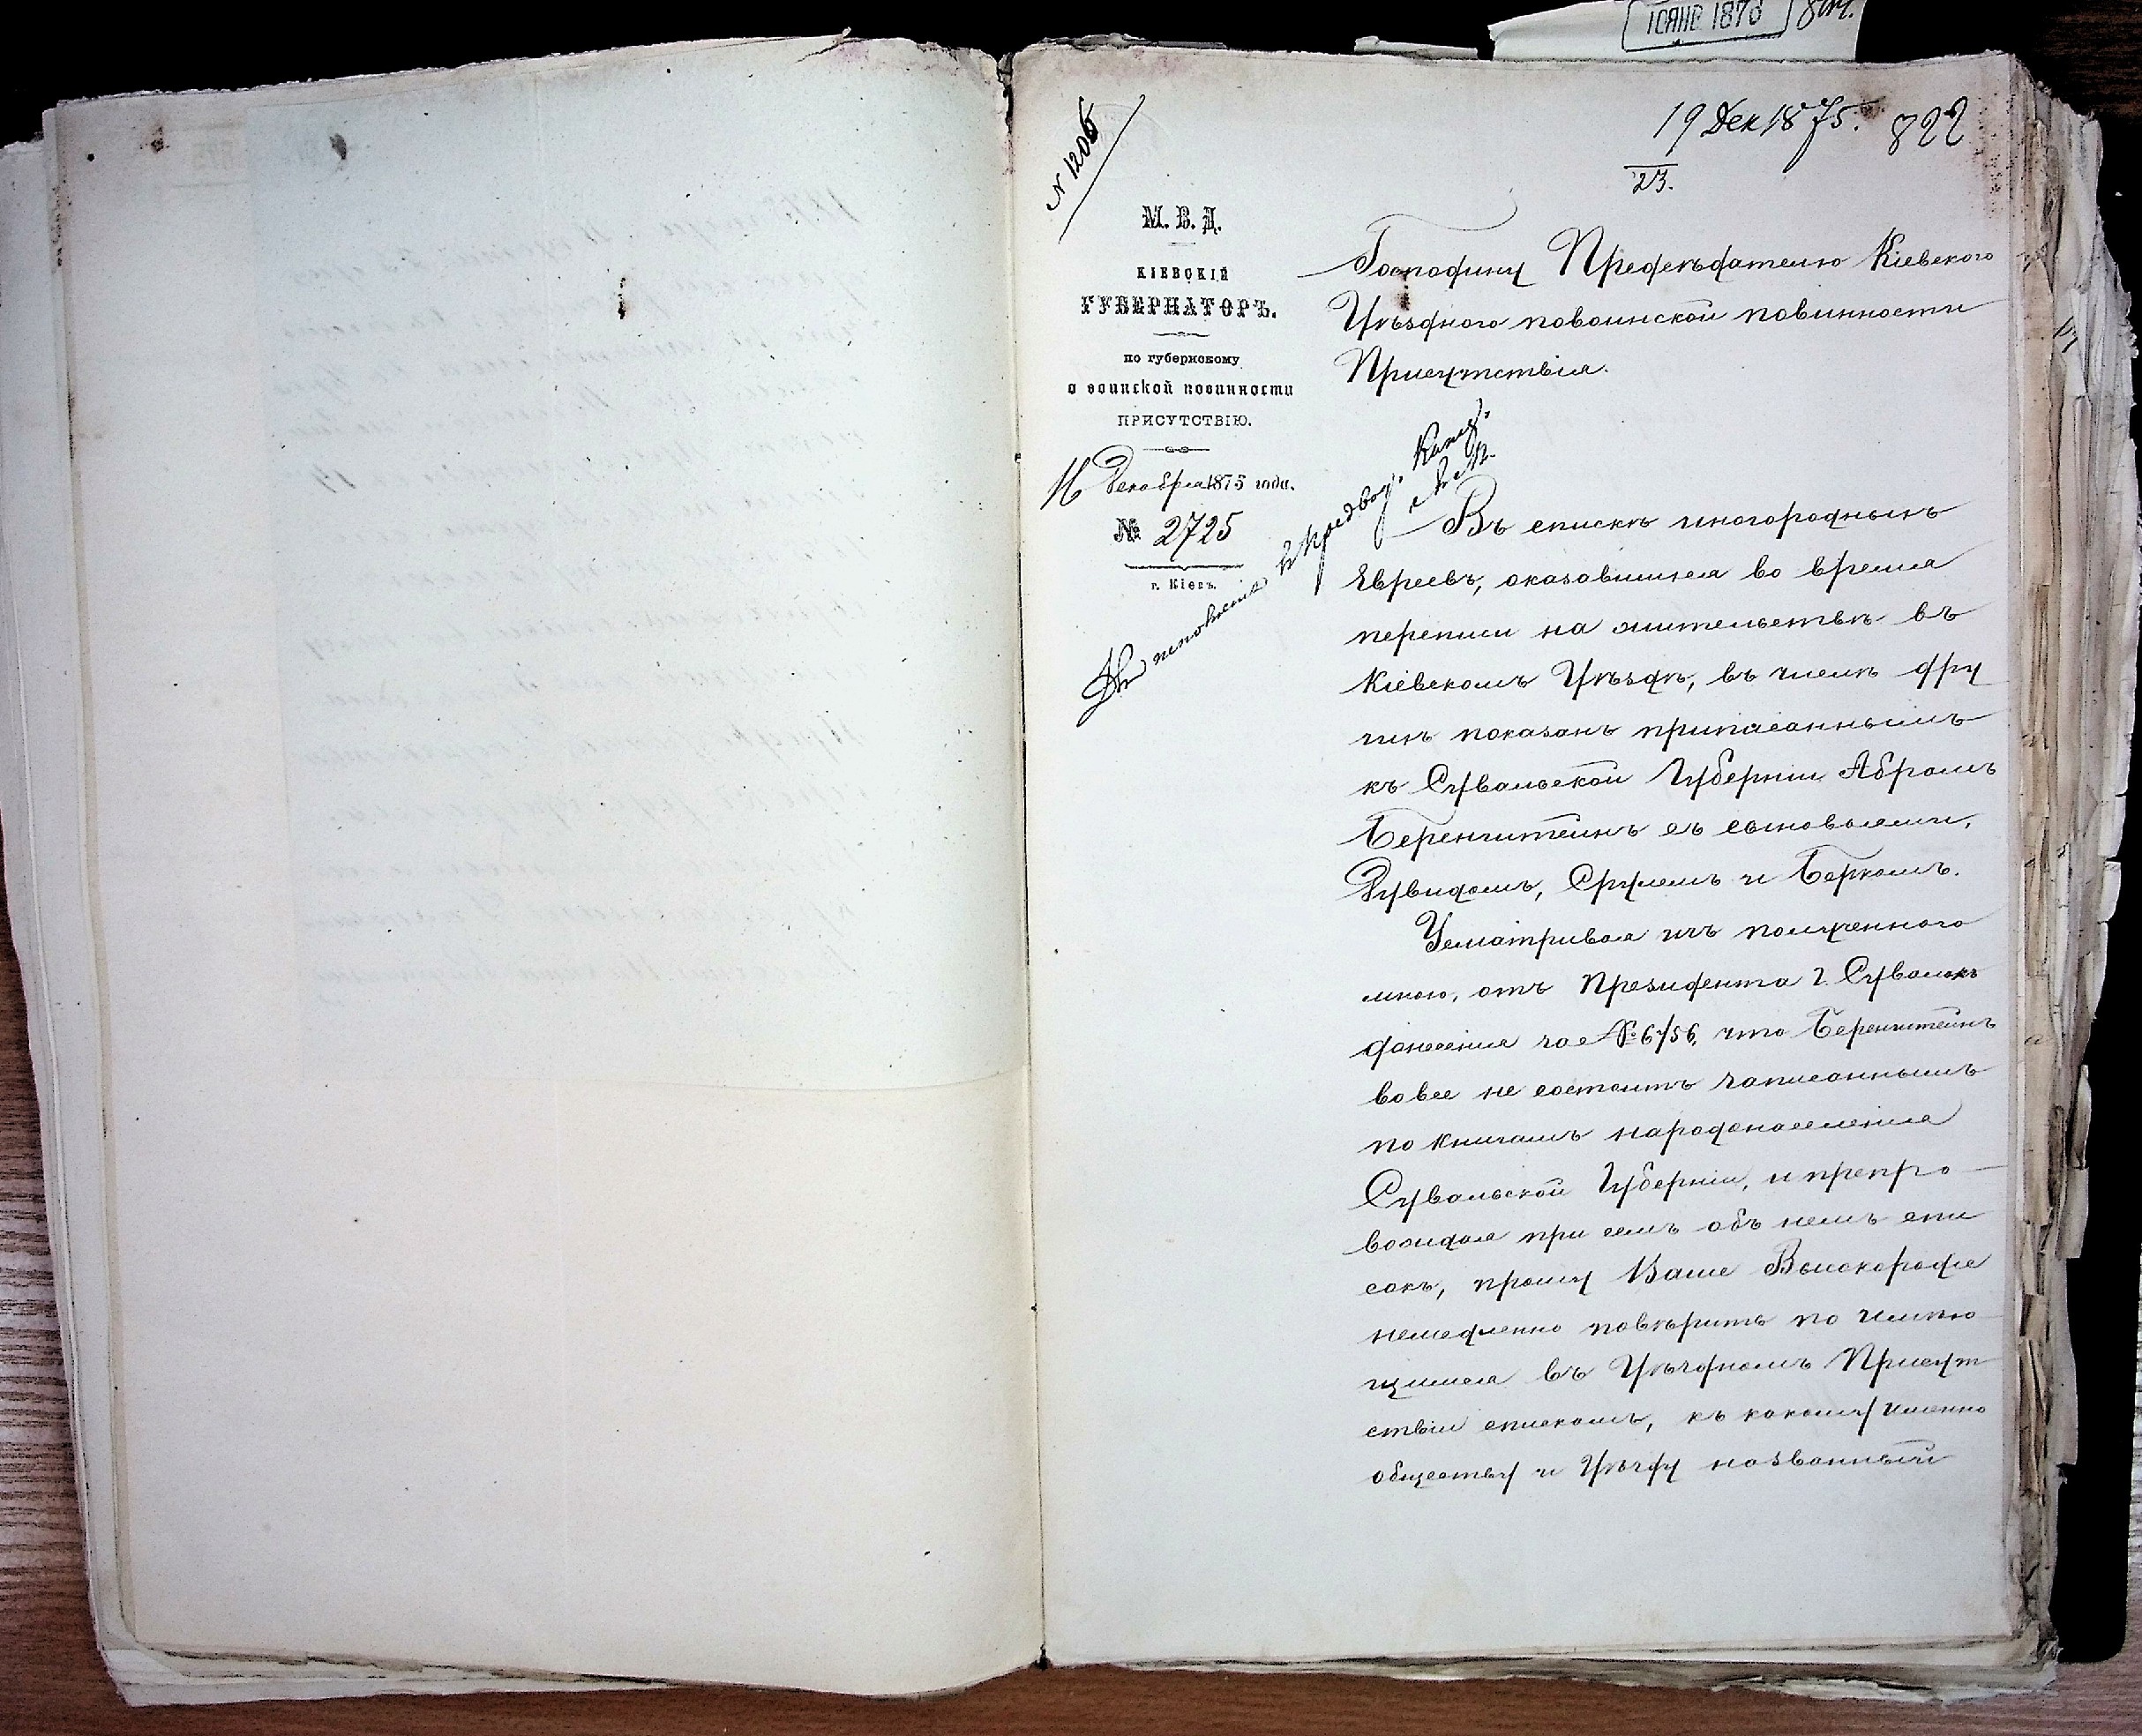 19 Дек 1875. 822
23.
N 1206
М. В. Д.
КІЕВСКІЙ
ГУБЕРНАТОРЪ.
по губернскому
о воинской повинности
ПРИСУТСТВІЮ.
16 Декабря 1875 года.
№ 2725
г. Кіевъ.
Господину Предсѣдателю Кіевскаго
Уѣзднаго по воинской повинности
Присутствія.
Въ спискѣ иногородныхъ
Евреевъ, оказавшихся во время
переписи на жительствѣ въ
Кіевскомъ Уѣздѣ, въ числѣ дру
гихъ показанъ приписаннымъ
къ Сувалкской Губерніи Абрамъ
Беренштейнъ съ сыновьями,
Рувидомъ, Срулемъ и Беркомъ.
Усматривая изъ полученнаго
мною, отъ Президента г. Сувалокъ
донесенія за № 6756, что Беренштейнъ
вовсе не состоитъ записаннымъ
по книгамъ народонаселенія
Сувалкской Губерніи, и препро
вождая при семъ объ немъ спи
сокъ, прошу Ваше Высокородіе
немедленно повѣрить по имѣю
щимся въ Уѣздномъ Присут
ствіи спискамъ, къ какому именно
обществу и Уѣзду названный